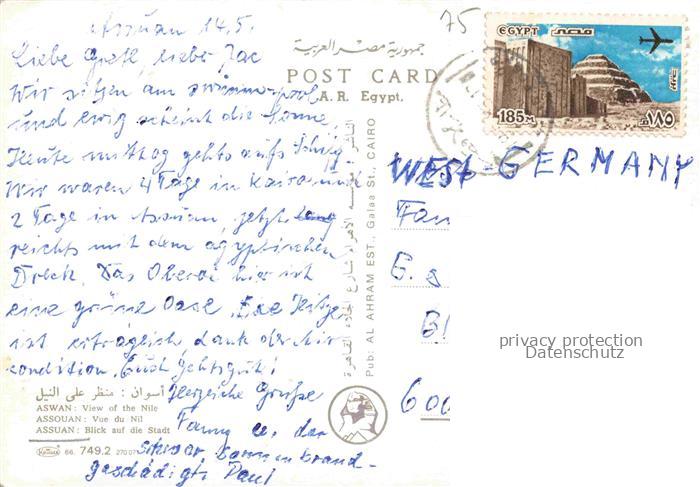 Assuan 14.5.
Liebe Gretl, lieber Jac
Wir sitzen am swimmingpool
und ewig scheint die Sonne
Heute mittag gehts aufs Schiff
Wir waren 4 Tage in Kairo und
2 Tage in Assuan, jetzt
reichts mit dem ägyptischen
Dreck. Das Oberoi hier ist
eine grüne Oase. Die Hitze
ist erträglich dank der Air
condition. Euch gehts gut!
Herzliche Grüße
Fanny u. der
schwer Sonnenbrand-
geschädigte Paul
75
جمهورية مصر العربية
POST CARD
A.R. Egypt.
Pub: AL AHRAM EST., Galaa St., CAIRO
أسوان : منظر على النيل
ASWAN: View of the Nile
ASSOUAN: Vue du Nil
ASSUAN: Blick auf die Stadt
66. 749.2
EGYPT مصر
185 M ١٨٥
WEST-GERMANY
Fam
600
privacy protection
Datenschutz